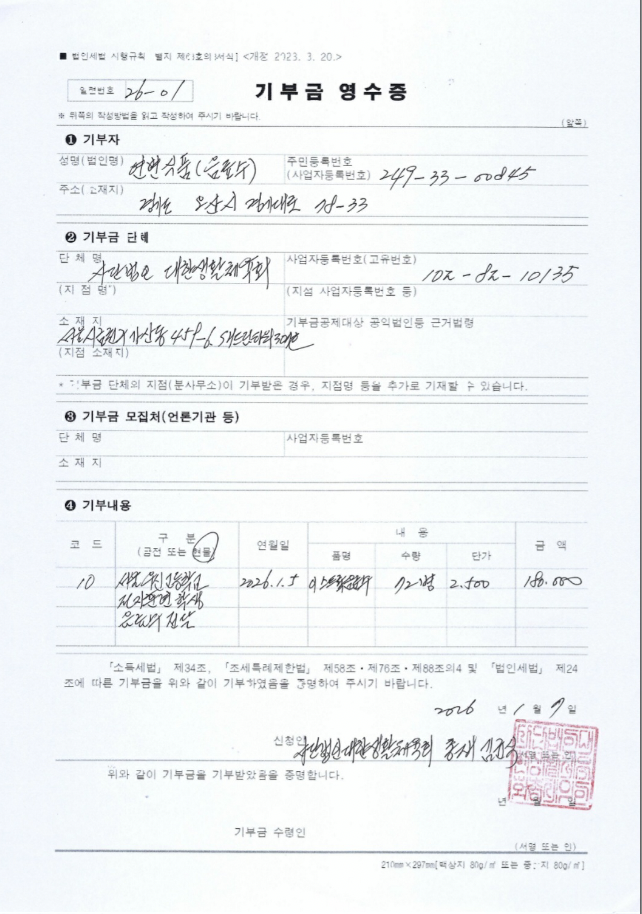 ■ 법인세법 시행규칙 [별지 제63호의3서식] <개정 2023. 3. 20.>
일련번호 26-01
기부금 영수증
※ 뒤쪽의 작성방법을 읽고 작성하여 주시기 바랍니다.
(앞쪽)
❶ 기부자
성명(법인명)
주민등록번호
(사업자등록번호) 249-33-00845
주소(소재지)
경기도 오산시 경기대로 78-33
❷ 기부금 단체
단 체 명 사단법인 대한생활체육회
사업자등록번호(고유번호)
102-82-10135
(지 점 명*)
(지점 사업자등록번호 등)
소 재 지
기부금공제대상 공익법인등 근거법령
서울시 금천구 가산동 459-6
(지점 소재지)
* 기부금 단체의 지점(분사무소)이 기부받은 경우, 지점명 등을 추가로 기재할 수 있습니다.
❸ 기부금 모집처(언론기관 등)
단 체 명
사업자등록번호
소 재 지
❹ 기부내용
코 드
구 분
(금전 또는 현물)
연월일
내 용
품명
수량
단가
금 액
10
2026.1.5
72병
2.500
180.000
학생
전달
「소득세법」 제34조, 「조세특례제한법」 제58조ㆍ제76조ㆍ제88조의4 및 「법인세법」 제24
조에 따른 기부금을 위와 같이 기부하였음을 증명하여 주시기 바랍니다.
2026 년 1 월 7 일
신청인 사단법인대한생활체육회 총재
(서명 또는 인)
위와 같이 기부금을 기부받았음을 증명합니다.
년 월 일
기부금 수령인
(서명 또는 인)
210mm×297mm[백상지 80g/㎡ 또는 중질지 80g/㎡]